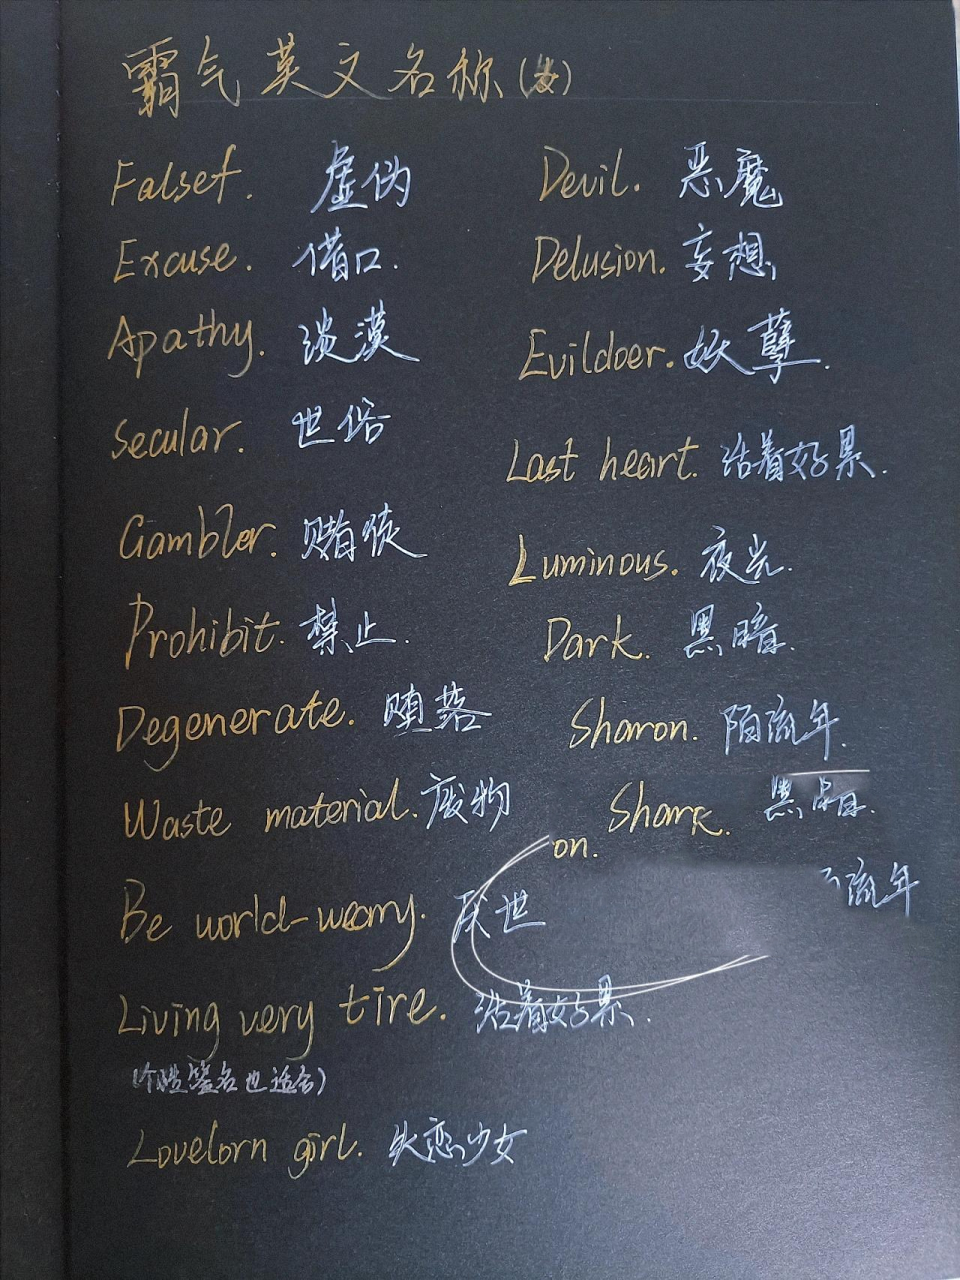 霸气英文名称(女)
Falsef. 虚伪
Excuse. 借口.
Apathy. 淡漠
Secular. 世俗
Gambler. 赌侠
Prohibit. 禁止.
Degenerate. 堕落
Waste material. 废物
Be world-weary. 厌世
Living very tire. 活着好累.
(个性签名也适合)
Lovelorn girl. 失恋少女
Devil. 恶魔
Delusion. 妄想
Evildoer. 妖孽.
Last heart. 活着好累.
Luminous. 夜光.
Dark. 黑暗.
Sharon. 陌流年.
Shark. 黑暗.
on.
流年